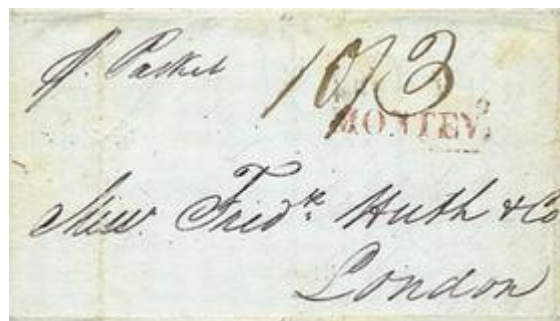 p. Packet
10/3
MONTEVº
Messrs. Fredk. Huth & Co
London